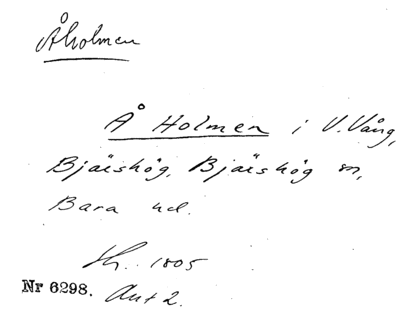 Åholmen
Å Holmen i V. Vång,
Bjärshög, Bjärshög sn,
Bara hd.
Sk. 1805
Nr 6298. Akt 2.